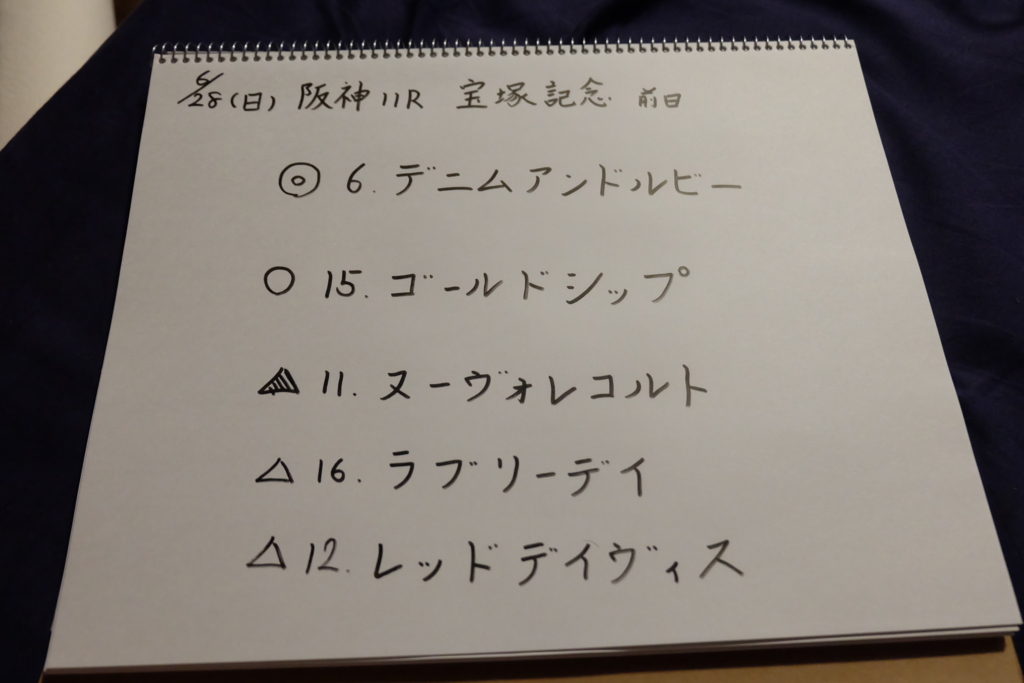 6/28(日) 阪神11R 宝塚記念 前日
◎ 6. デニムアンドルビー
○ 15. ゴールドシップ
▲ 11. ヌーヴォレコルト
△ 16. ラブリーデイ
△ 12. レッドデイヴィス